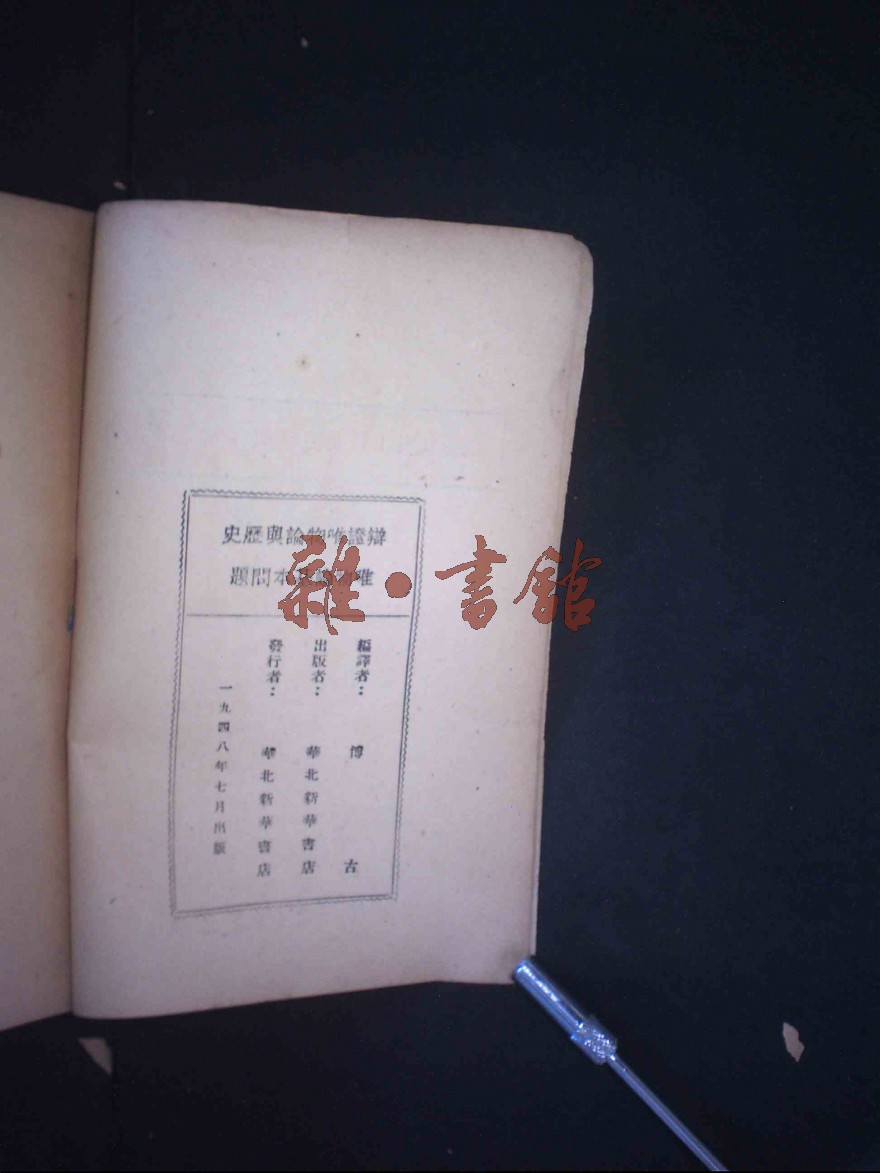 辯證唯物論與歷史
唯物論基本問題
編譯者：博古
出版者：華北新華書店
發行者：華北新華書店
一九四八年七月出版
雜·書館